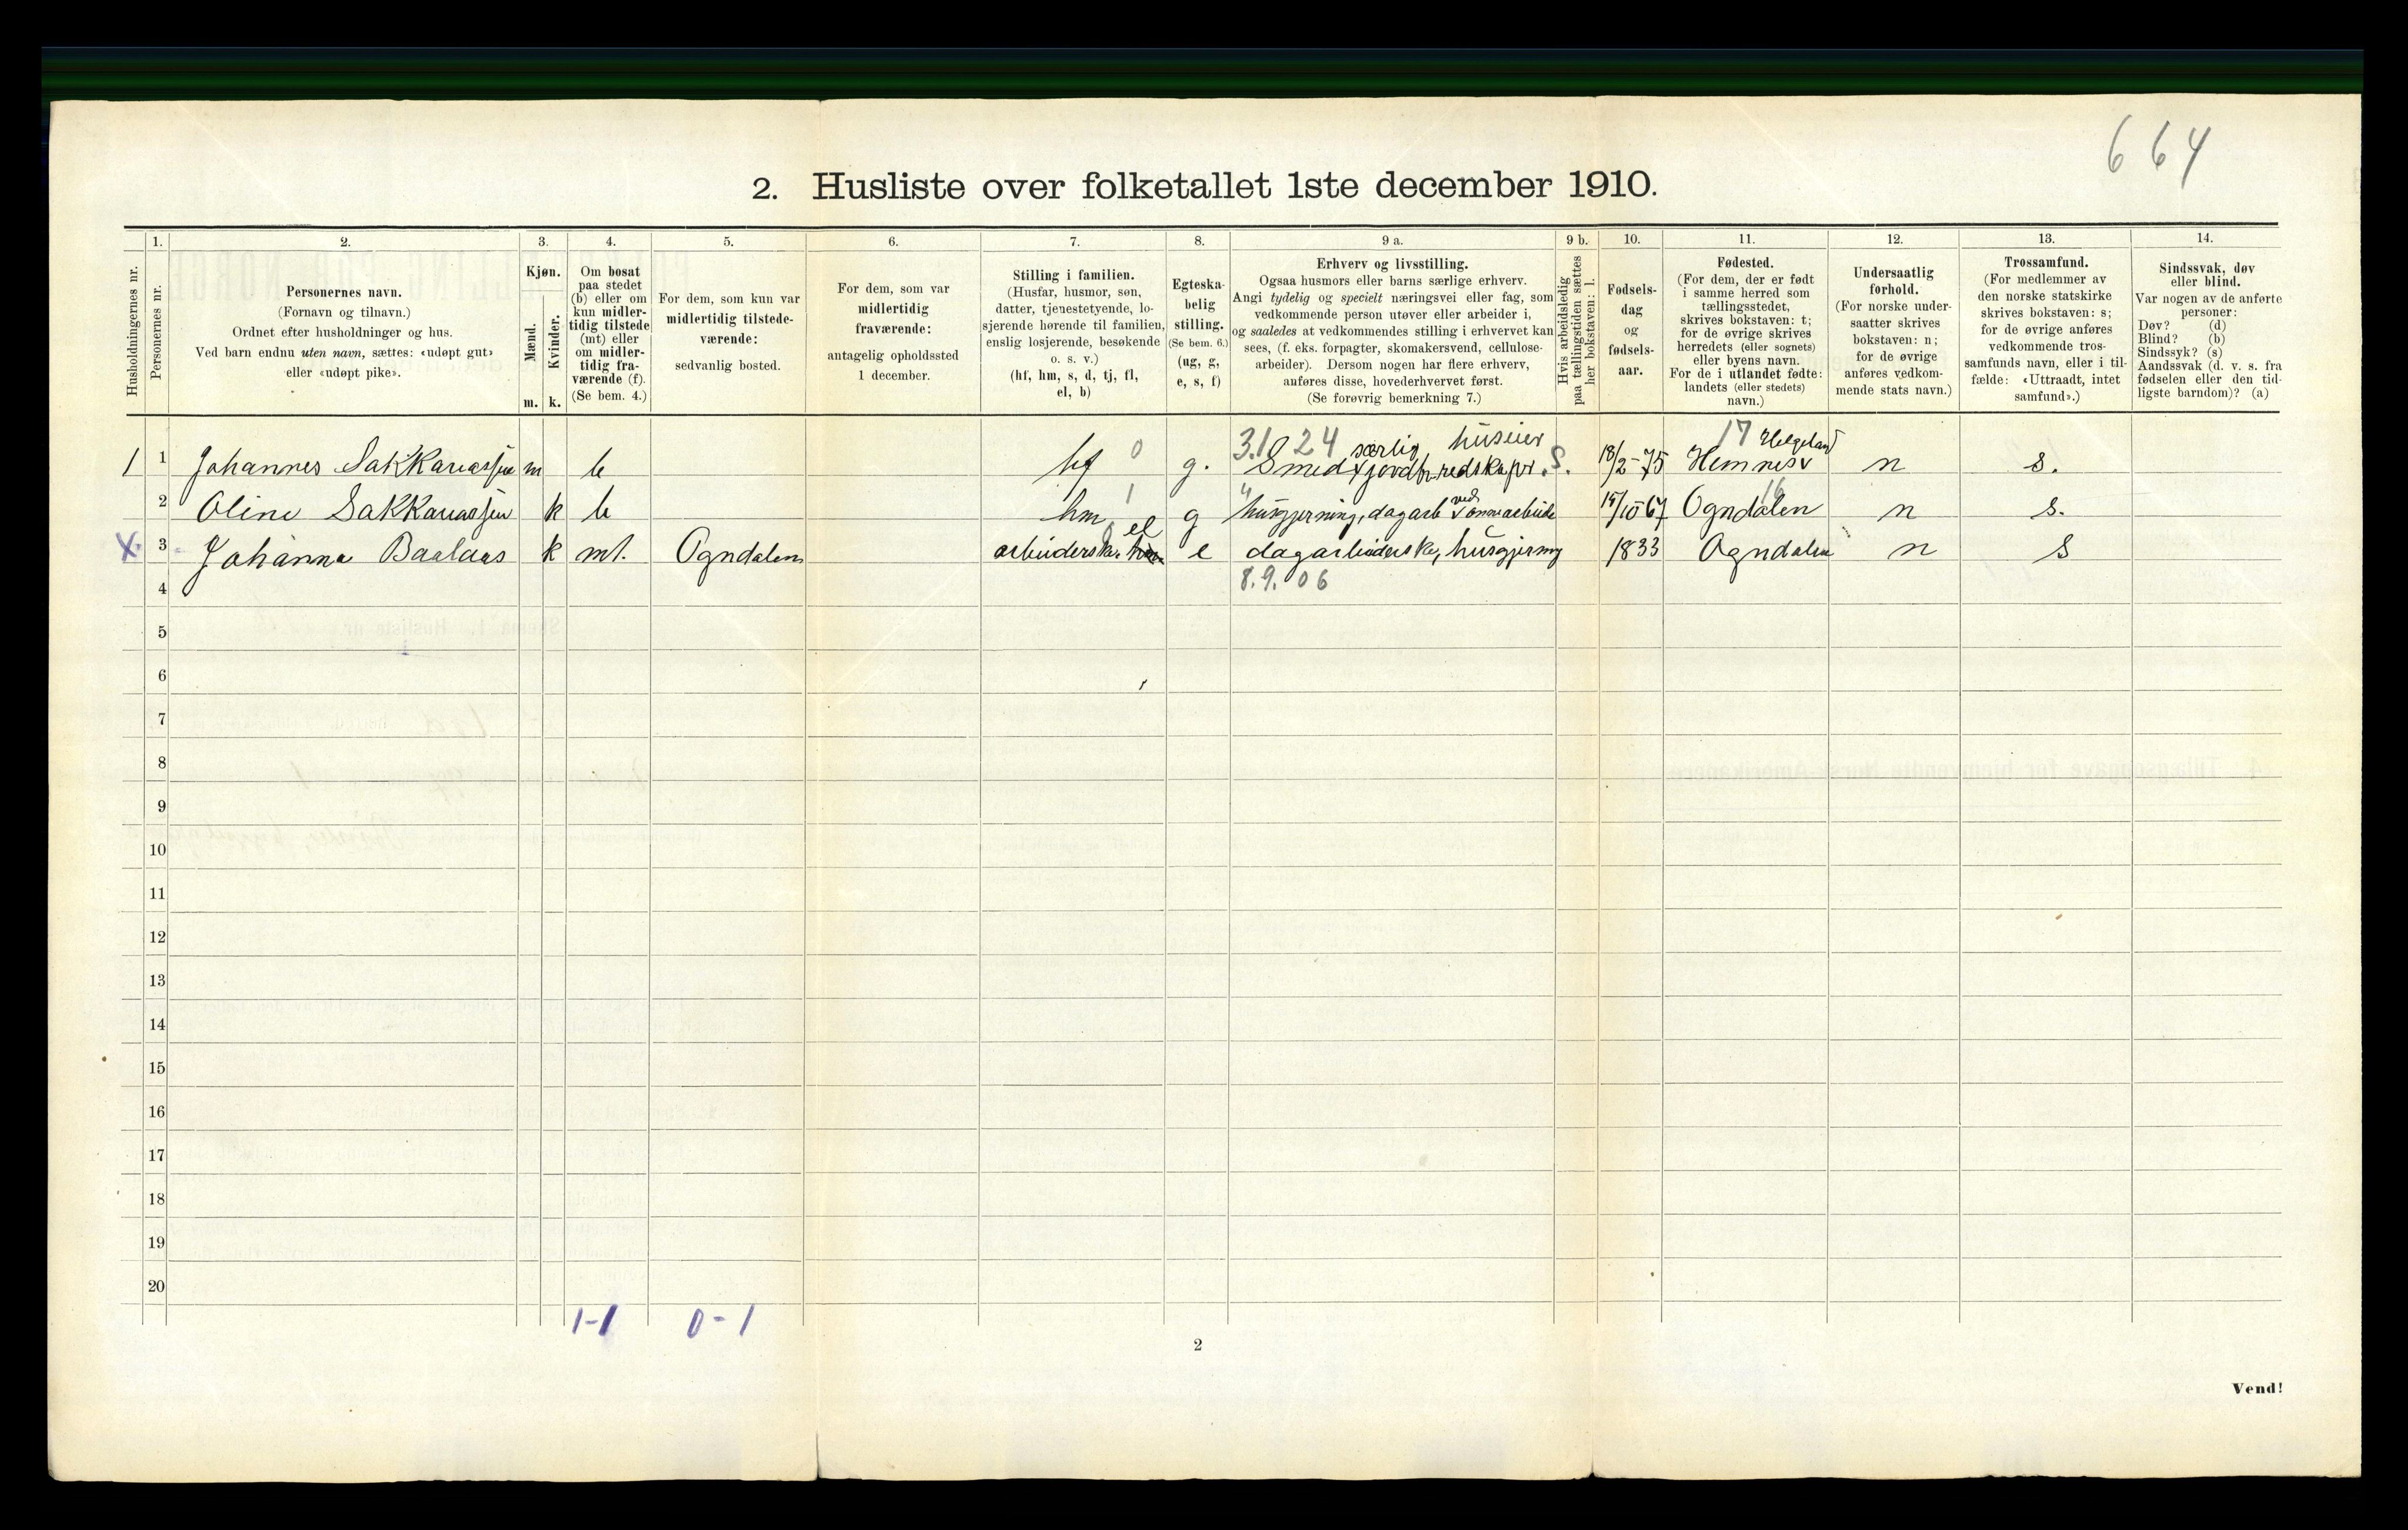 664
2. Husliste over folketallet 1ste december 1910.
Husholdningernes nr.
1.
Personernes nr.
2.
Personernes navn.
(Fornavn og tilnavn.)
Ordnet efter husholdninger og hus.
Ved barn endnu uten navn, sættes: «udøpt gut»
eller «udøpt pike».
3.
Kjøn.
Mænd.
Kvinder.
m. k.
4.
Om bosat
paa stedet
(b) eller om
kun midler-
tidig tilstede
(mt) eller
om midler-
tidig fra-
værende (f).
(Se bem. 4.)
5.
For dem, som kun var
midlertidig tilstede-
værende:
sedvanlig bosted.
6.
For dem, som var
midlertidig
fraværende:
antagelig opholdssted
1 december.
7.
Stilling i familien.
(Husfar, husmor, søn,
datter, tjenestetyende, lo-
sjerende hørende til familien,
enslig losjerende, besøkende
o. s. v.)
(hf, hm, s, d, tj, fl,
el, b)
8.
Egteska-
belig
stilling.
(Se bem. 6.)
(ug, g,
e, s, f)
9 a.
Erhverv og livsstilling.
Ogsaa husmors eller barns særlige erhverv.
Angi tydelig og specielt næringsvei eller fag, som
vedkommende person utøver eller arbeider i,
og saaledes at vedkommendes stilling i erhvervet kan
sees, (f. eks. forpagter, skomakersvend, cellulose-
arbeider). Dersom nogen har flere erhverv,
anføres disse, hovederhvervet først.
(Se forøvrig bemerkning 7.)
9 b.
Hvis arbeidsledig
paa tællingstiden sættes
her bokstaven: l.
10.
Fødsels-
dag
og
fødsels-
aar.
11.
Fødested.
(For dem, der er født
i samme herred som
tællingsstedet,
skrives bokstaven: t;
for de øvrige skrives
herredets (eller sognets)
eller byens navn.
For de i utlandet fødte:
landets (eller stedets)
navn.)
12.
Undersaatlig
forhold.
(For norske under-
saatter skrives
bokstaven: n;
for de øvrige
anføres vedkom-
mende stats navn.)
13.
Trossamfund.
(For medlemmer av
den norske statskirke
skrives bokstaven: s;
for de øvrige anføres
vedkommende tros-
samfunds navn, eller i til-
fælde: «Uttraadt, intet
samfund».)
14.
Sindssvak, døv
eller blind.
Var nogen av de anførte
personer:
Døv? (d)
Blind? (b)
Sindssyk? (s)
Aandssvak (d. v. s. fra
fødselen eller den tid-
ligste barndom)? (a)
3.1 24 særlig huseier 17 Helgeland
1 1 Johannes Sakkariassen m b hf 0 g. Smed jordbr. redskaper. S. 18/2-75 Hemnes n s.
2 Oline Sakkariassen k b hm 1 g husgjerning, dagarb ved onnearbeide 15/10 67 Ogndalen 16 n s.
X 3 Johanna Baalaas k mt. Ogndalen arbeiderske el e dagarbeiderske, husgjerning 1833 Ogndalen n s
8.9. 06
4
5
6
7
8
9
10
11
12
13
14
15
16
17
18
19
20
1-1 0-1
2
Vend!